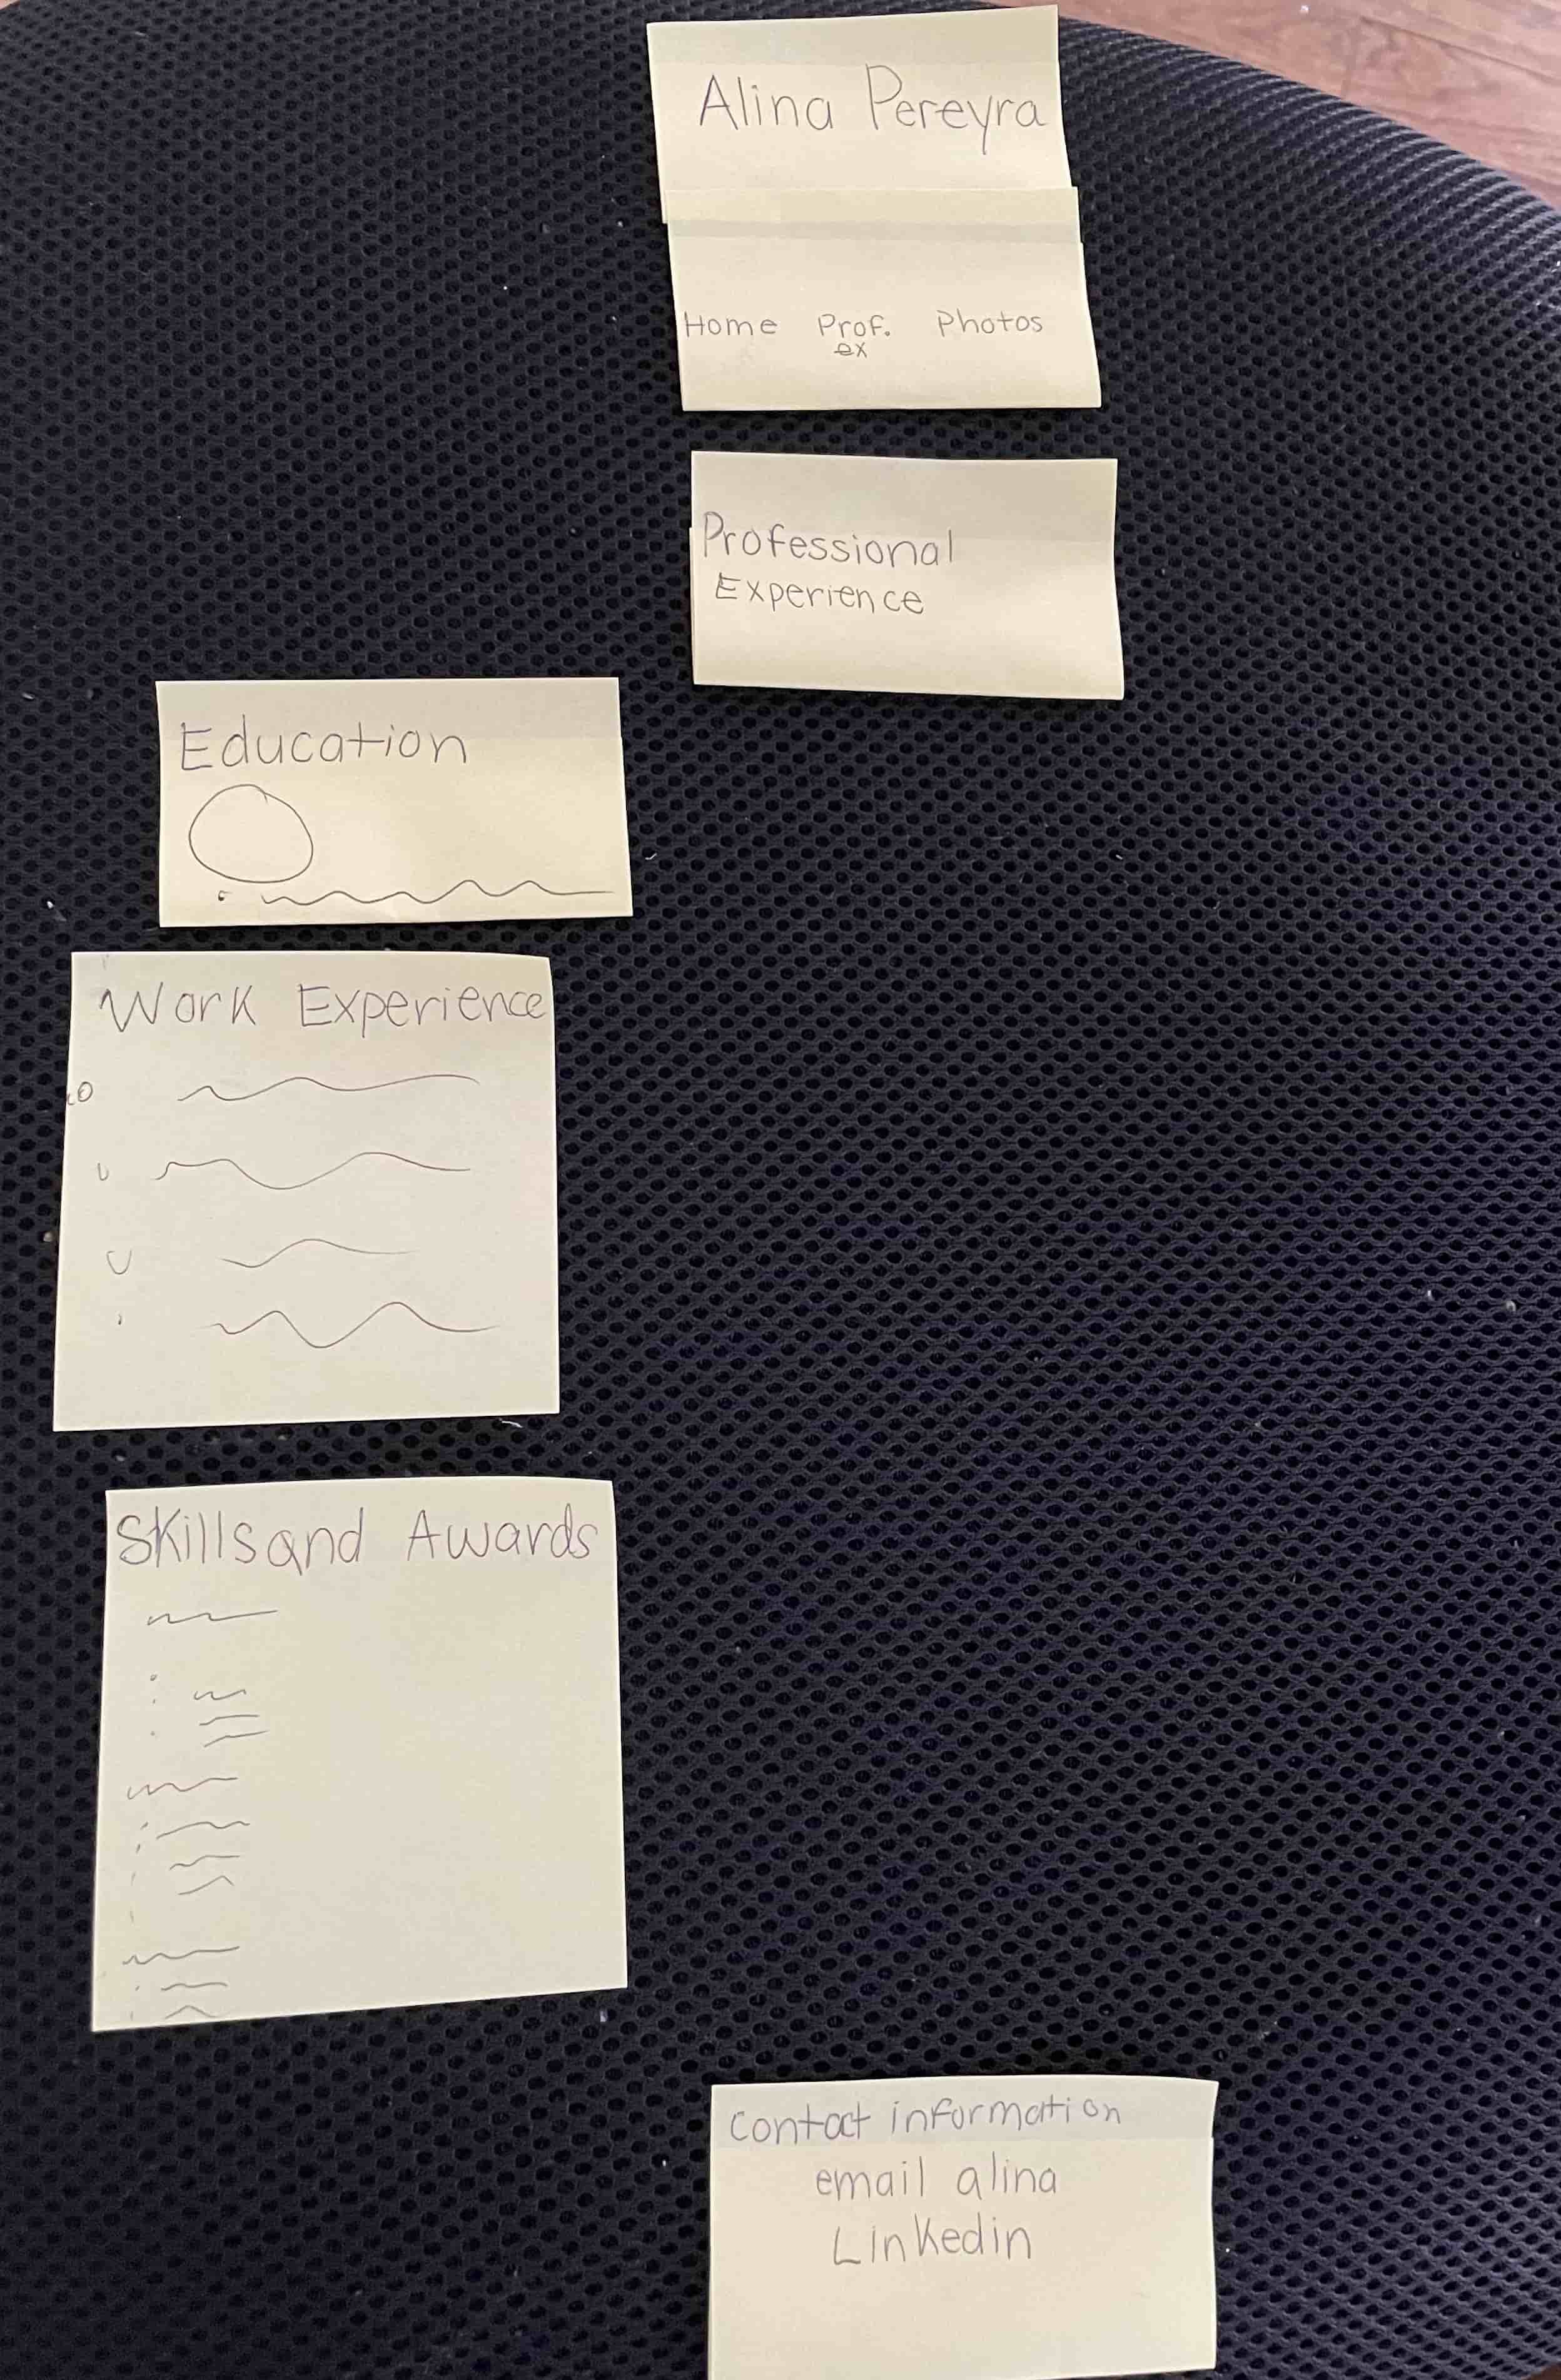 Alina Pereyra
Home Prof. Photos
ex
Professional
Experience
Education
Work Experience
Skills and Awards
Contact information
email alina
Linkedin